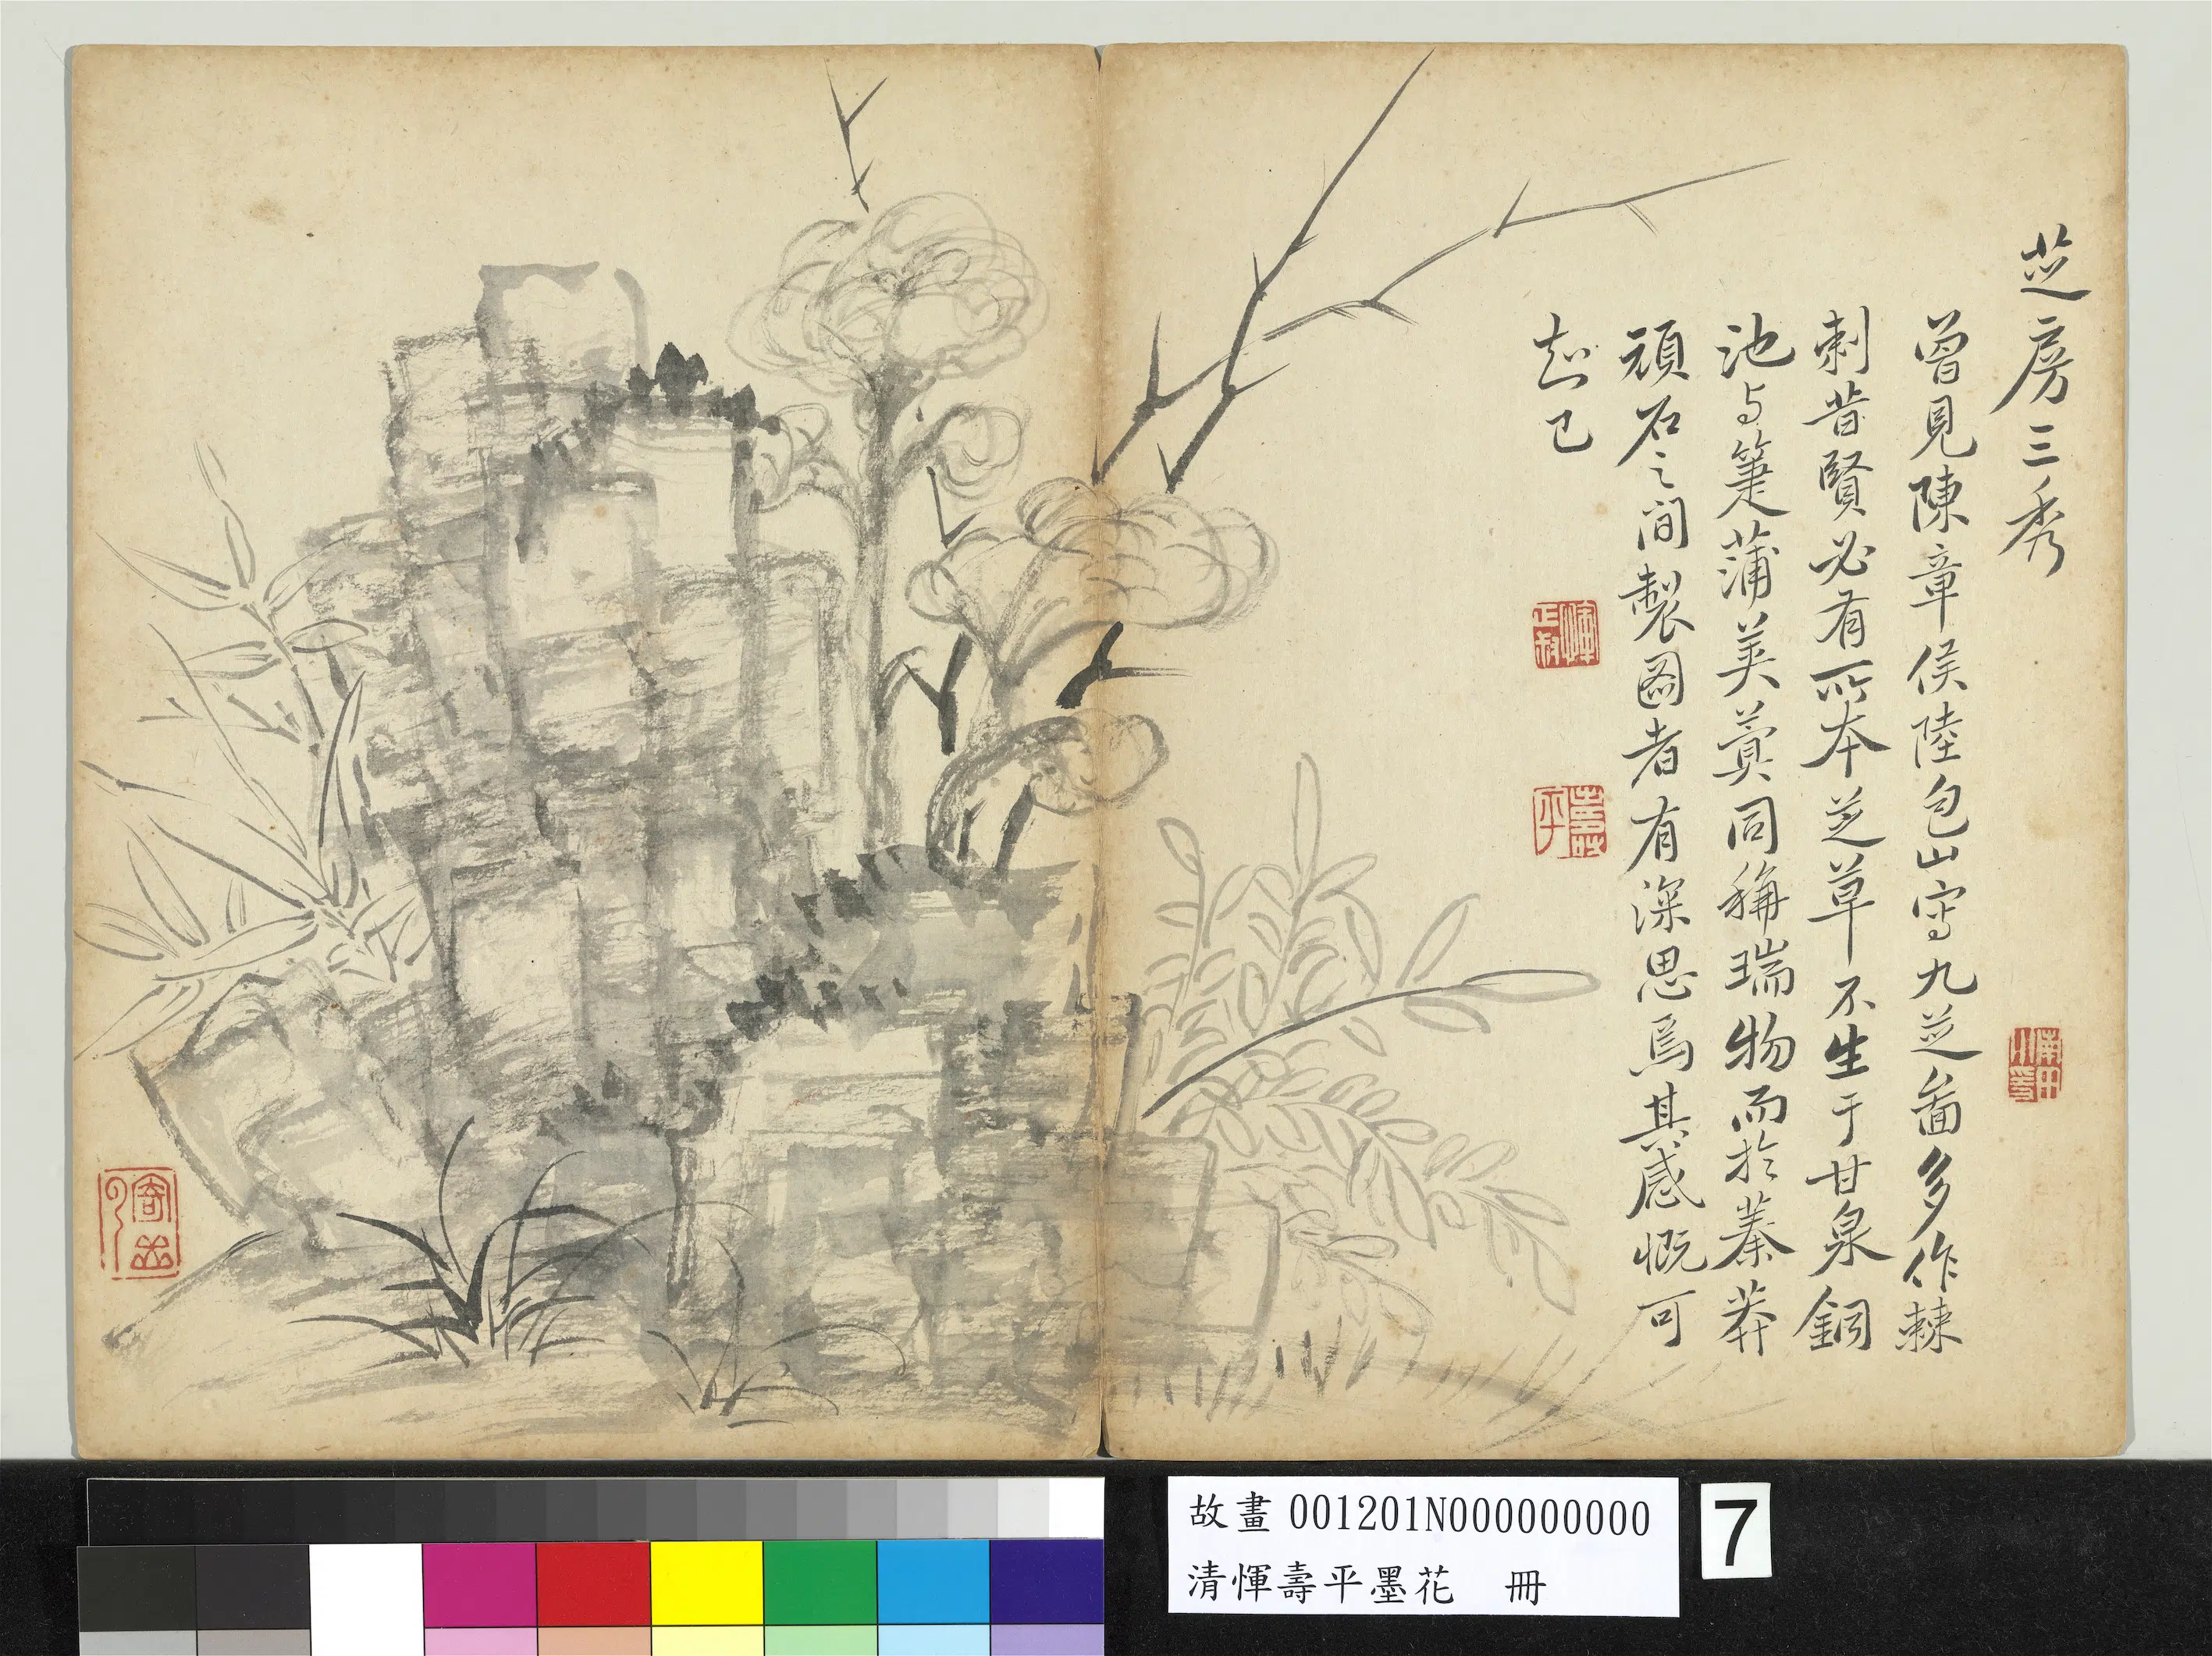 芝房三秀
曾見陳章侯陸包山寫九芝啚多作棘
刺昔賢必有所本芝草不生于甘泉銅
池与箑蒲蓂莢同稱瑞物而於蓁莽
頑石之間製圖者有深思焉其感慨可
知已
惲正叔
壽平
寄岳
故畫 001201N000000000
清惲壽平墨花 冊
7